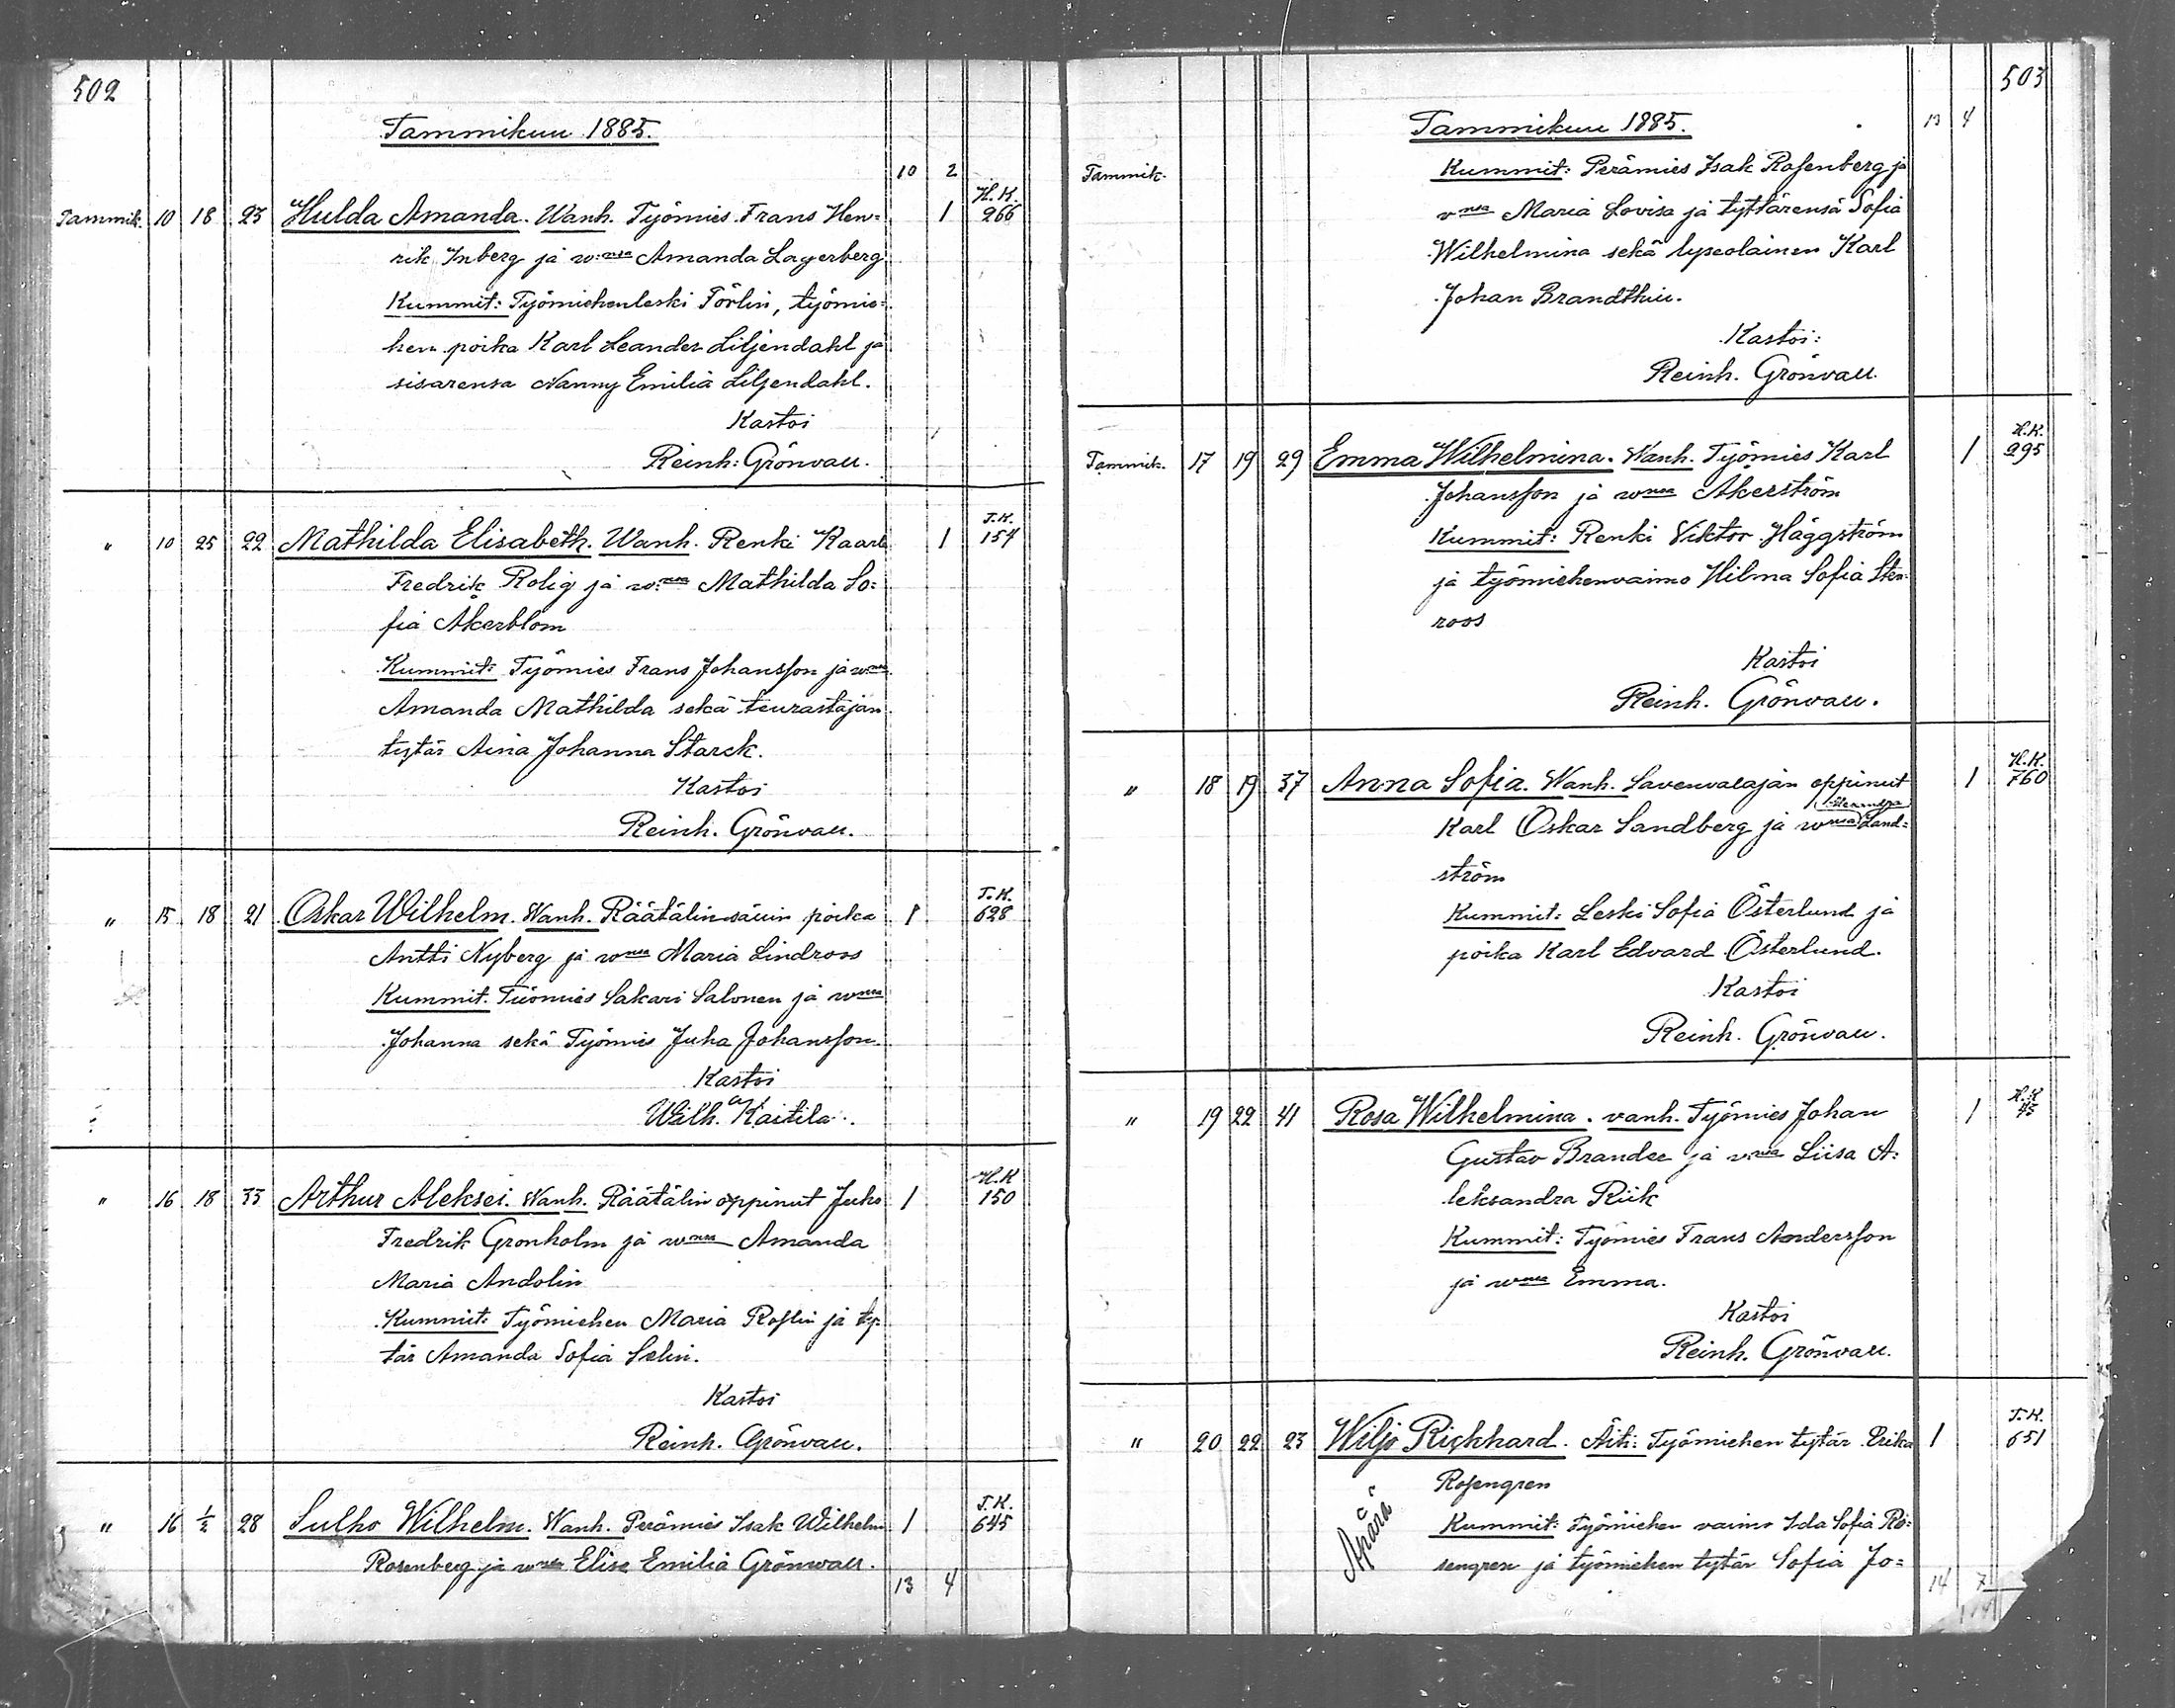 502
Tammikuu 1885.
10 2
Tammik. 10 18 23 Hulda Amanda. Wanh. Työmies Frans Hen= 1 H.K. 266
rik Inberg ja w:nsa Amanda Lagerberg
Kummit: Työmiehenleski Förlin, työmie=
hen poika Karl Leander Liljendahl ja
sisarensa Nanny Emilia Liljendahl.
Kastoi
Reinh: Grönvall.
" 10 25 22 Mathilda Elisabeth. Wanh. Renki Kaarle 1 T.K. 154
Fredrik Rolig ja w:nsa Mathilda So=
fia Åkerblom
Kummit: Työmies Frans Johansson ja w:nsa
Amanda Mathilda sekä teurastajan
tytär Aina Johanna Starck.
Kastoi
Reinh. Grönvall.
" 15 18 21 Oskar Wilhelm. Wanh. Räätälinsällin poika 1 T.K. 628
Antti Nyberg ja wnsa Maria Lindroos
Kummit. Työmies Sakari Salonen ja wnsa
Johanna sekä Työmies Juha Johansson.
Kastoi
Wilh. Kaitila.
" 16 18 33 Arthur Aleksei. Wanh. Räätälin oppinut Juho 1 H.K 150
Fredrik Gronholm ja wnsa Amanda
Maria Andolin
Kummit: Työmiehen Maria Roslin ja ty=
tär Amanda Sofia Selin.
Kastoi
Reinh. Grönvall.
" 16 1/2 28 Sulho Wilhelm. Wanh. Perämies Isak Wilhelm 1 T.K. 645
Rosenberg ja wnsa Elise Emilia Grönwall.
13 4
503
Tammikuu 1885.
13 4
Tammik. Kummit: Perämies Isak Rosenberg ja
vnsa Maria Lovisa ja tyttärensä Sofia
Wilhelmina sekä lyseolainen Karl
Johan Brandthill.
Kastoi:
Reinh. Grönvall.
Tammik. 17 19 29 Emma Wilhelmina. Wanh. Työmies Karl 1 H.K. 295
Johansson ja wnsa Åkerström
Kummit: Renki Viktor Häggström
ja työmiehenvaimo Hilma Sofia Sten=
roos
Kastoi
Reinh. Grönvall.
" 18 19 37 Anna Sofia. Wanh. Savenvalajan oppinut 1 H.K. 760
Karl Oskar Sandberg ja wnsa Alexandra Land=
ström
Kummit: Leski Sofia Österlund ja
poika Karl Edvard Österlund.
Kastoi
Reinh. Grönvall.
" 19 22 41 Rosa Wilhelmina. vanh. Työmies Johan 1 H.K 45
Gustav Brander ja v:nsa Liisa A=
leksandra Riik
Kummit: Työmies Frans Andersson
ja wnsa Emma.
Kastoi
Reinh. Grönvall.
" 20 22 23 Wiljo Rickhard. Äiti: Työmiehen tytär Erika 1 T.K. 651
Rosengren
Äpärä
Kummit: työmiehen vaimo Ida Sofia Ro=
sengren ja työmiehen tytär Sofia Jo=
14 7